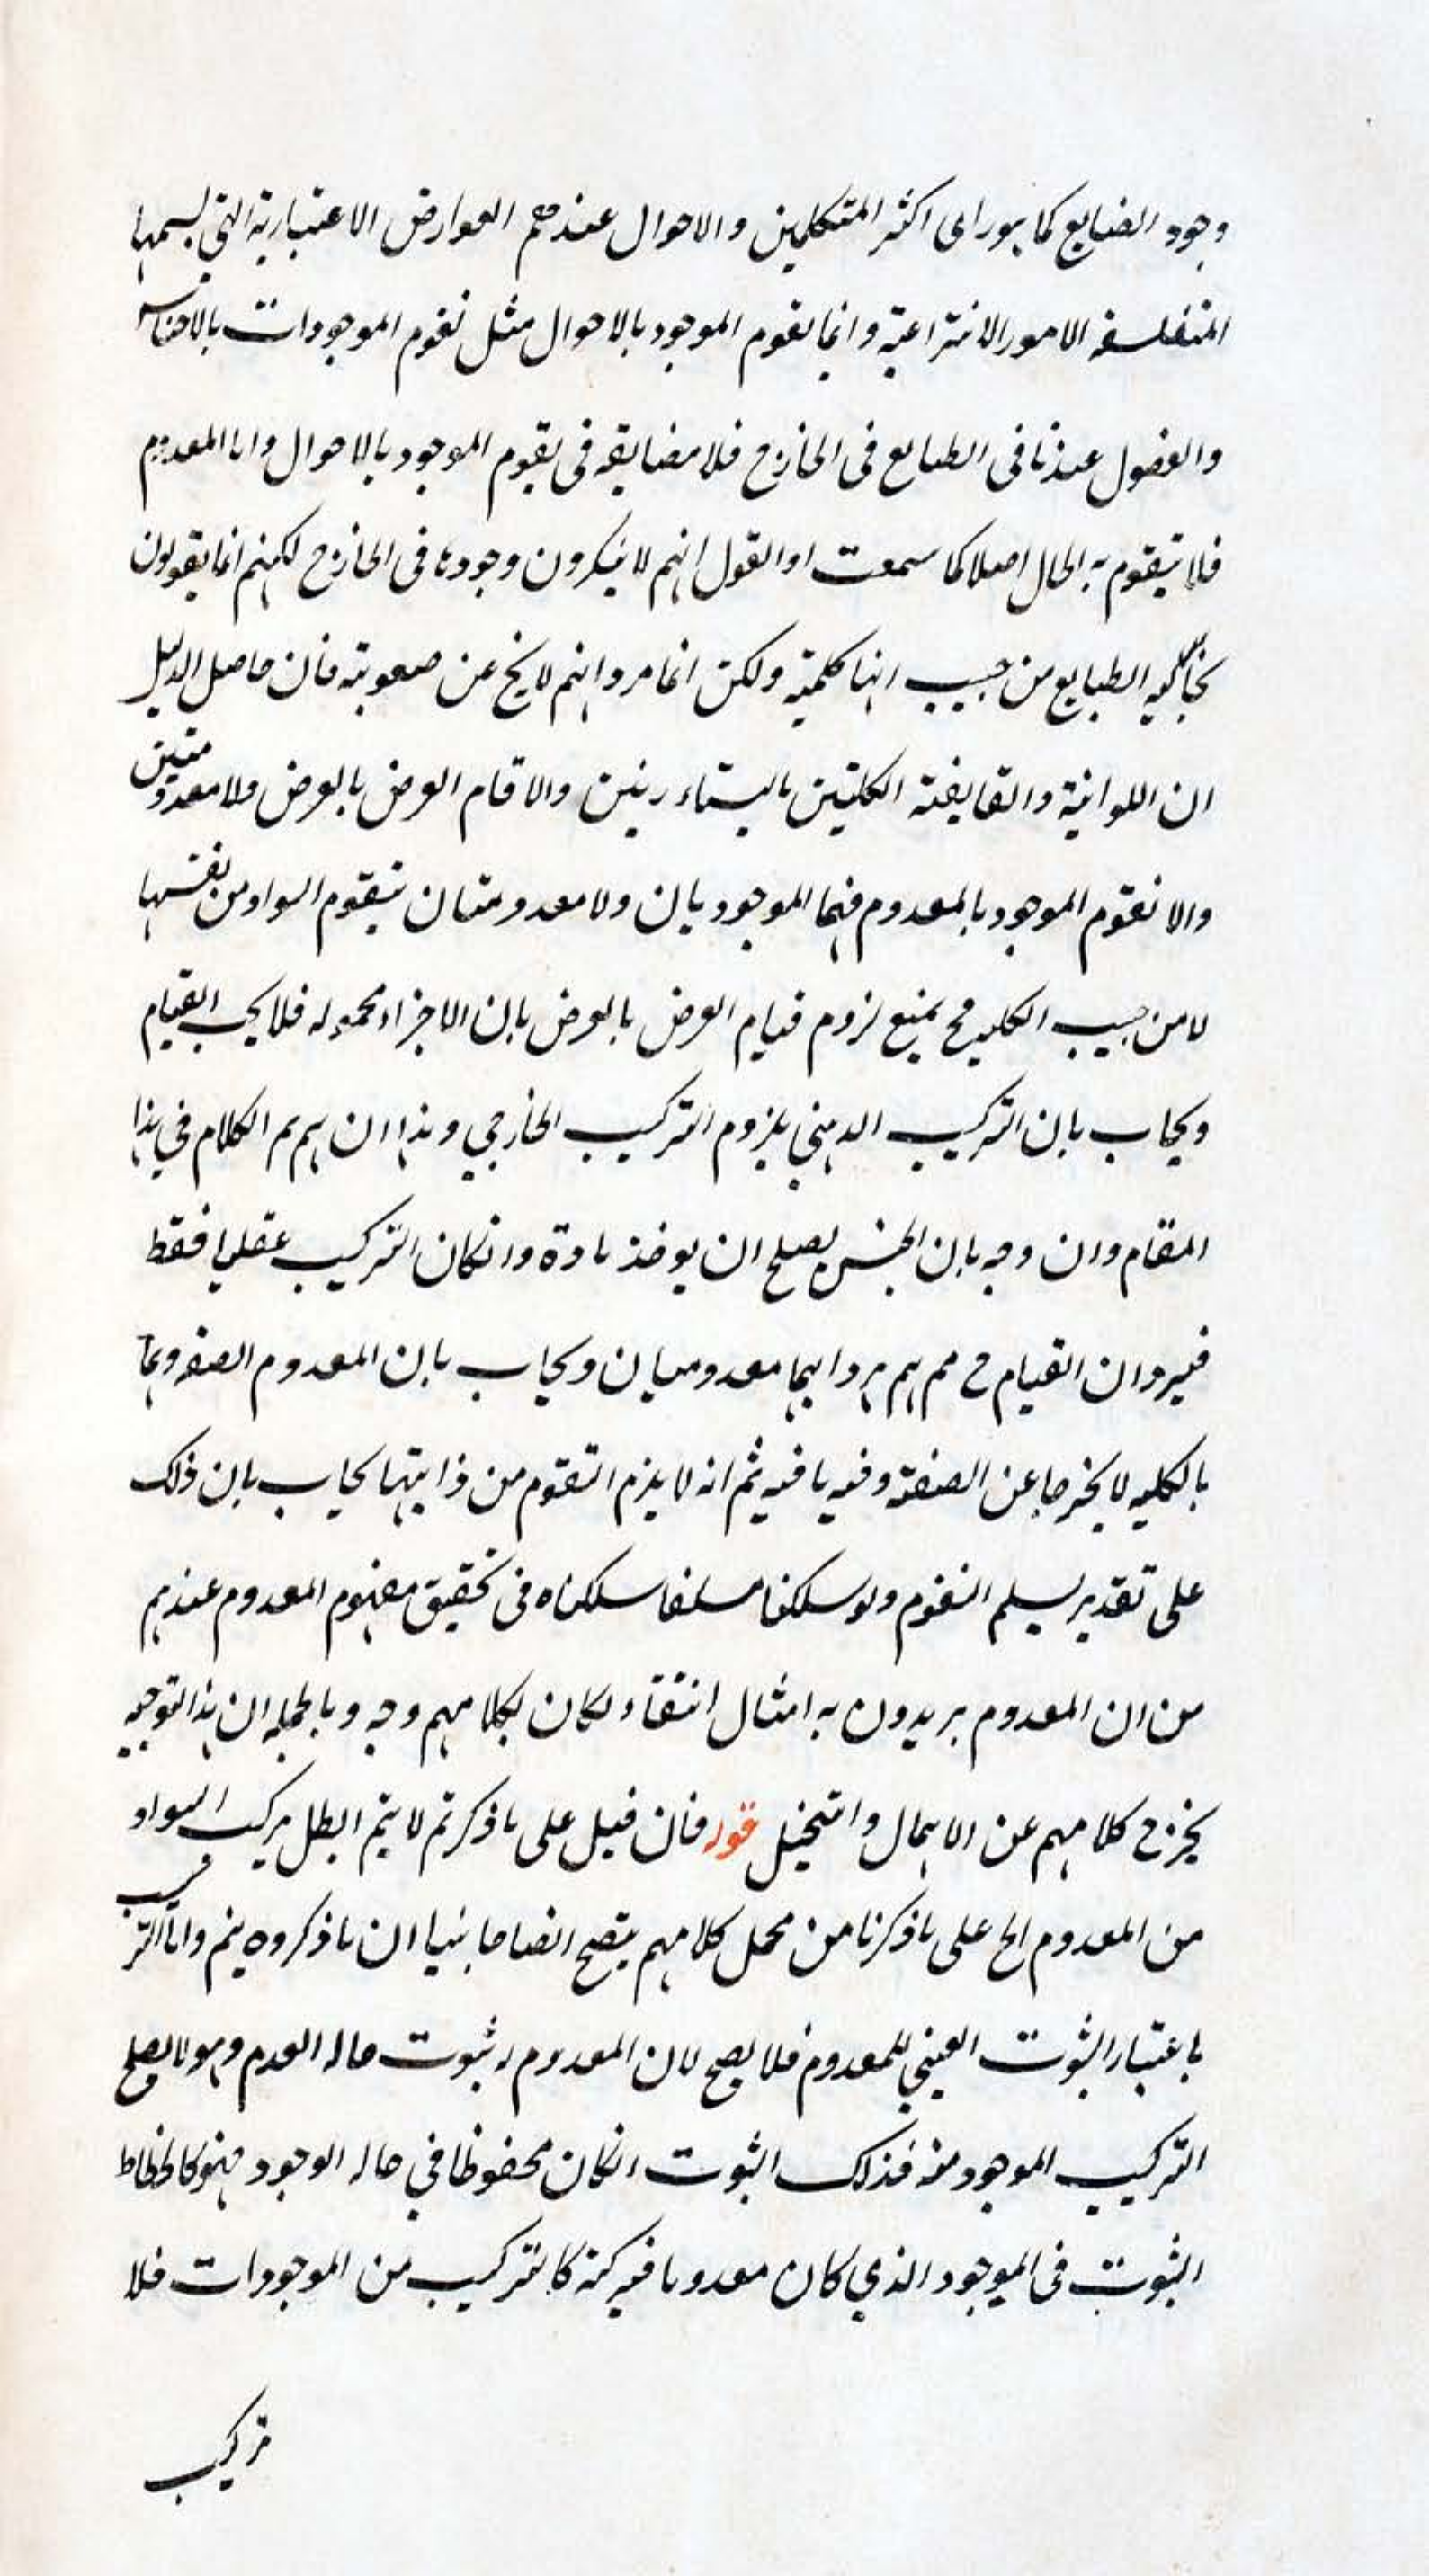 وجود الضبايع كما هو راى اكثر المتكلمين والاحوال عندهم العوارض الاعتبارية التي يسميها
المتفلسفه الامور الانتزاعية وانما تقوم الموجود بالاحوال مثل تقوم الموجودات بالاجناس
والفصول عندنا فى الطبايع فى الخارج فلا مضايقه فى تقوم الموجود بالاحوال واما المعدوم
فلا يتقوم به الحال اصلا كما سمعت او القول انهم لا ينكرون وجودها فى الخارج لكنهم انما يقولون
الطبايع من حيث انها كلية ولكن انما مرداهم لا يخ عن صعوبة فان حاصل الدليل
ان اللوانية والقابضة الكليتين ليستا والا قام العرض بالعرض ولا معدومتين
والا تقوم الموجود بالمعدوم فهما لا موجودتان ولا معدومتان يتقوم السواد من نفسها
لا من حيث الكليه فح يمنع لزوم قيام العرض بالعرض بان الاجزاء محموله فلا يجب القيام
ويجاب بان التركيب الذهني يلزوم التركيب الخارجي وهذا ان لم يتم الكلام في هذا
المقام وان وجه بان الجنس يصلح ان يوخذ مادة وانكان التركيب عقليا فقط
فيرد ان القيام ح مم انهما معدومان ويجاب بان المعدوم الصفه وهما
بالكليه لا يخرجا عن الصفة وفيه ما فيه ثم انه لا يلزم التقوم من ذاتيتها يجاب بان ذلك
على تقدير تسليم التقوم ولو سلكنا مسلكا سلكناه فى تحقيق مفهوم المعدوم عندهم
من ان المعدوم يريدون به امثال انتقاء لكان لكلامهم وجه وبالجمله ان هذا التوجيه
يخرج كلامهم عن الاهمال والتخيل قوله فان قيل على ما ذكرتم لا يتم ابطل تركيب السواد
من المعدوم الخ على ما ذكرنا من محمل كلامهم يتضح اتضاحا بينا ان ما ذكروه يتم واما التركيب
باعتبار الثبوت العيني للمعدوم فلا يصح لان المعدوم له ثبوت حاله العدم وهو لا يصلح
التركيب الموجود منه فذلك الثبوت انكان محفوظا في حاله الوجود فهو
الثبوت فى الموجود الذي كان معدوما كالتركيب من الموجودات فلا
تركيب